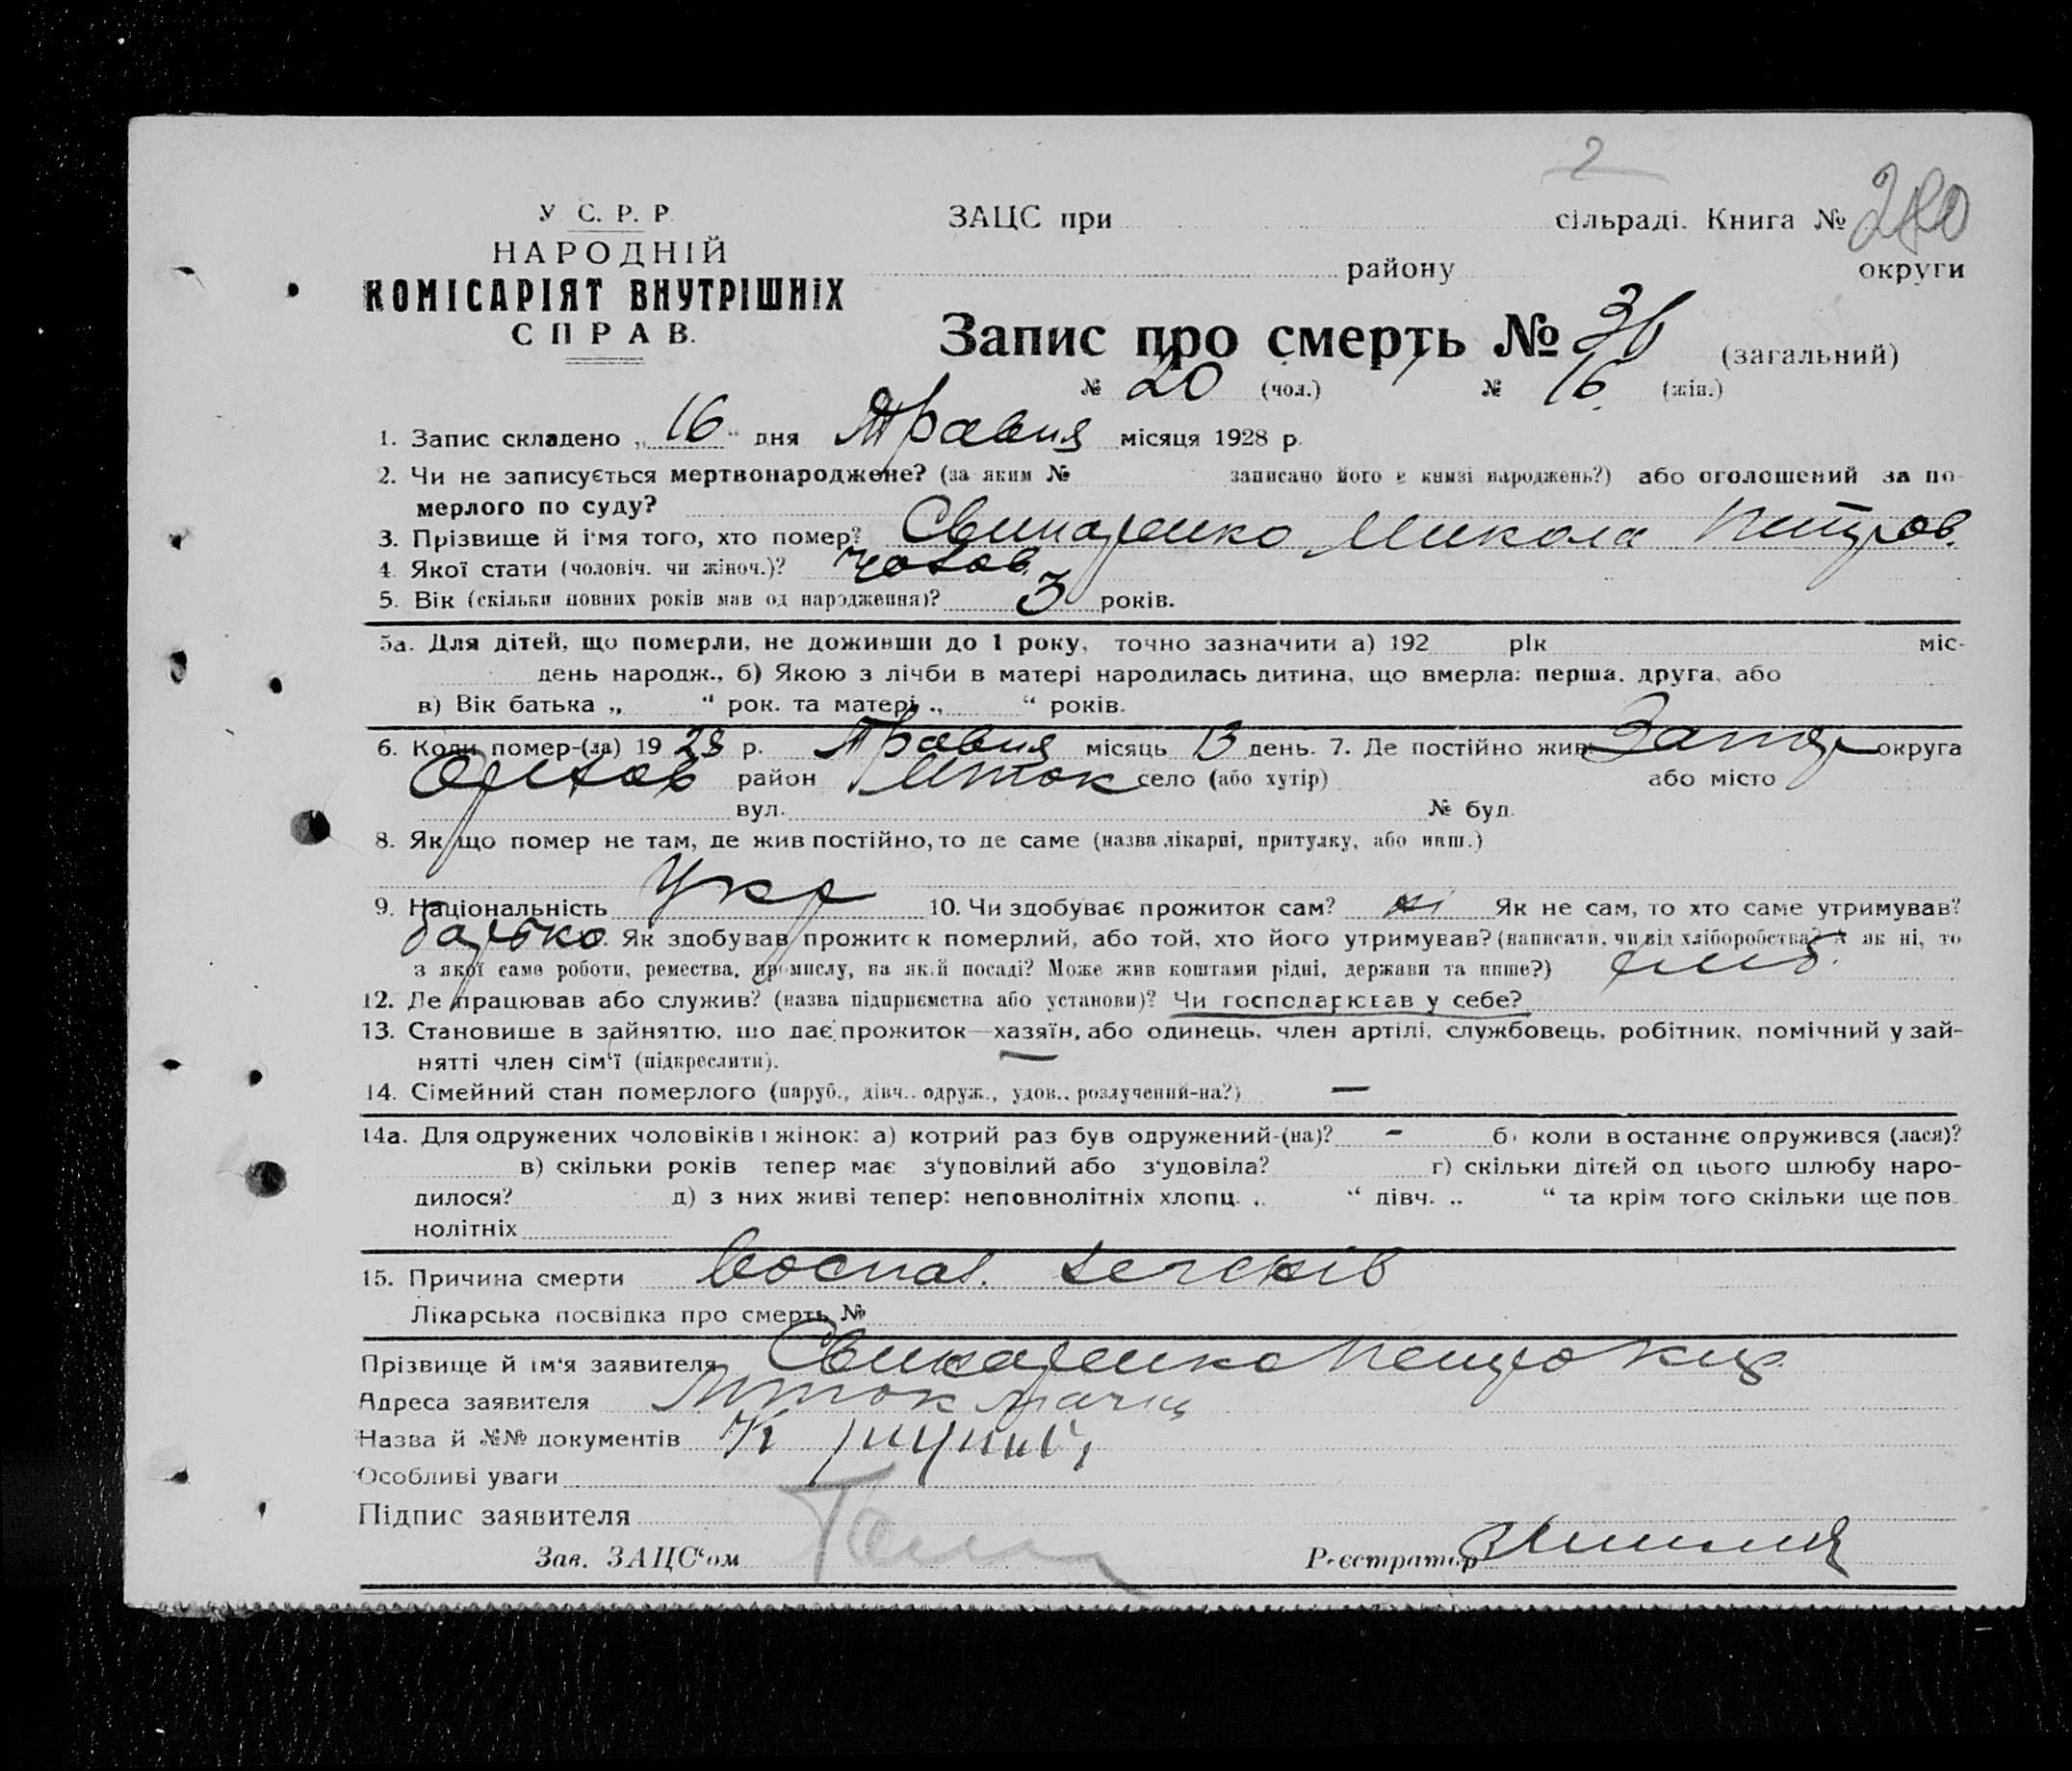 2
У С. Р. Р.
НАРОДНІЙ
КОМІСАРІЯТ ВНУТРІШНІХ
СПРАВ.
ЗАЦС при сільраді. Книга № 280
району округи
Запис про смерть № 36 (загальний)
№ 20 (чол.) № 16 (жін.)
1. Запис складено „16“ дня Травня місяця 1928 р.
2. Чи не записується мертвонароджене? (за яким № записано його в книзі народжень?) або оголошений за по-
мерлого по суду?
3. Прізвище й ім'я того, хто помер? Свинаренко Микола Петров.
4. Якої статі (чоловіч. чи жіноч.)? чолов.
5. Вік (скільки повних років мав од народження)? 3 років.
5а. Для дітей, що померли, не доживши до 1 року, точно зазначити а) 192 рік міс-
день народж., б) Якою з лічби в матері народилась дитина, що вмерла: перша, друга, або
в) Вік батька „ “ рок. та матері „ “ років.
6. Коли помер-(ла) 1928 р. Травня місяць 13 день. 7. Де постійно жив Запор округа
Оріхов район М Ток село (або хутір) або місто
вул. № буд.
8. Якщо помер не там, де жив постійно, то де саме (назва лікарні, притулку, або инш.)
9. Національність Укр 10. Чи здобуває прожиток сам? ні Як не сам, то хто саме утримував?
батько. Як здобував прожиток померлий, або той, хто його утримував? (написати, чи від хліборобства? А як ні, то
з якої саме роботи, ремества, промислу, на якій посаді? Може жив коштами рідні, держави та инше?) хліб.
12. Де працював або служив? (назва підприємства або установи)? Чи господарював у себе?
13. Становище в зайняттю, що дає прожиток—хазяїн, або одинець, член артілі, службовець, робітник, помічний у зай-
нятті член сім'ї (підкреслити). —
14. Сімейний стан померлого (паруб., дівч., одруж., удов., розлучений-на?) —
14а. Для одружених чоловіків і жінок: а) котрий раз був одружений-(на)? - б) коли востаннє одружився (лася)?
в) скільки років тепер має з'удовілий або з'удовіла? г) скільки дітей од цього шлюбу наро-
дилося? д) з них живі тепер: неповнолітніх хлопц. „ “ дівч. „ “ та крім того скільки ще пов-
нолітніх
15. Причина смерти Воспал. легєнів
Лікарська посвідка про смерть №
Прізвище й ім'я заявителя Свинаренко Петро
Адреса заявителя М Ток
Назва й №№ документів
Особливі уваги
Підпис заявителя
Зав. ЗАЦС'ом
Реєстратор